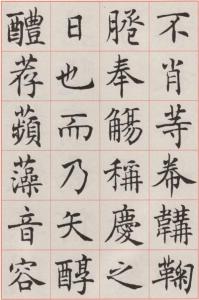 不肖等帣韝鞠
𦠆奉觴稱慶之
日也而乃矢醇
醴荐蘋藻音容